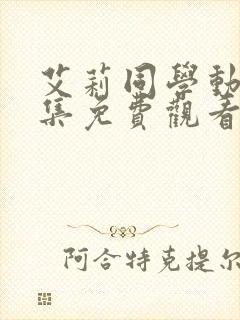 艾莉同學動
集免費觀看
阿合特克提尔